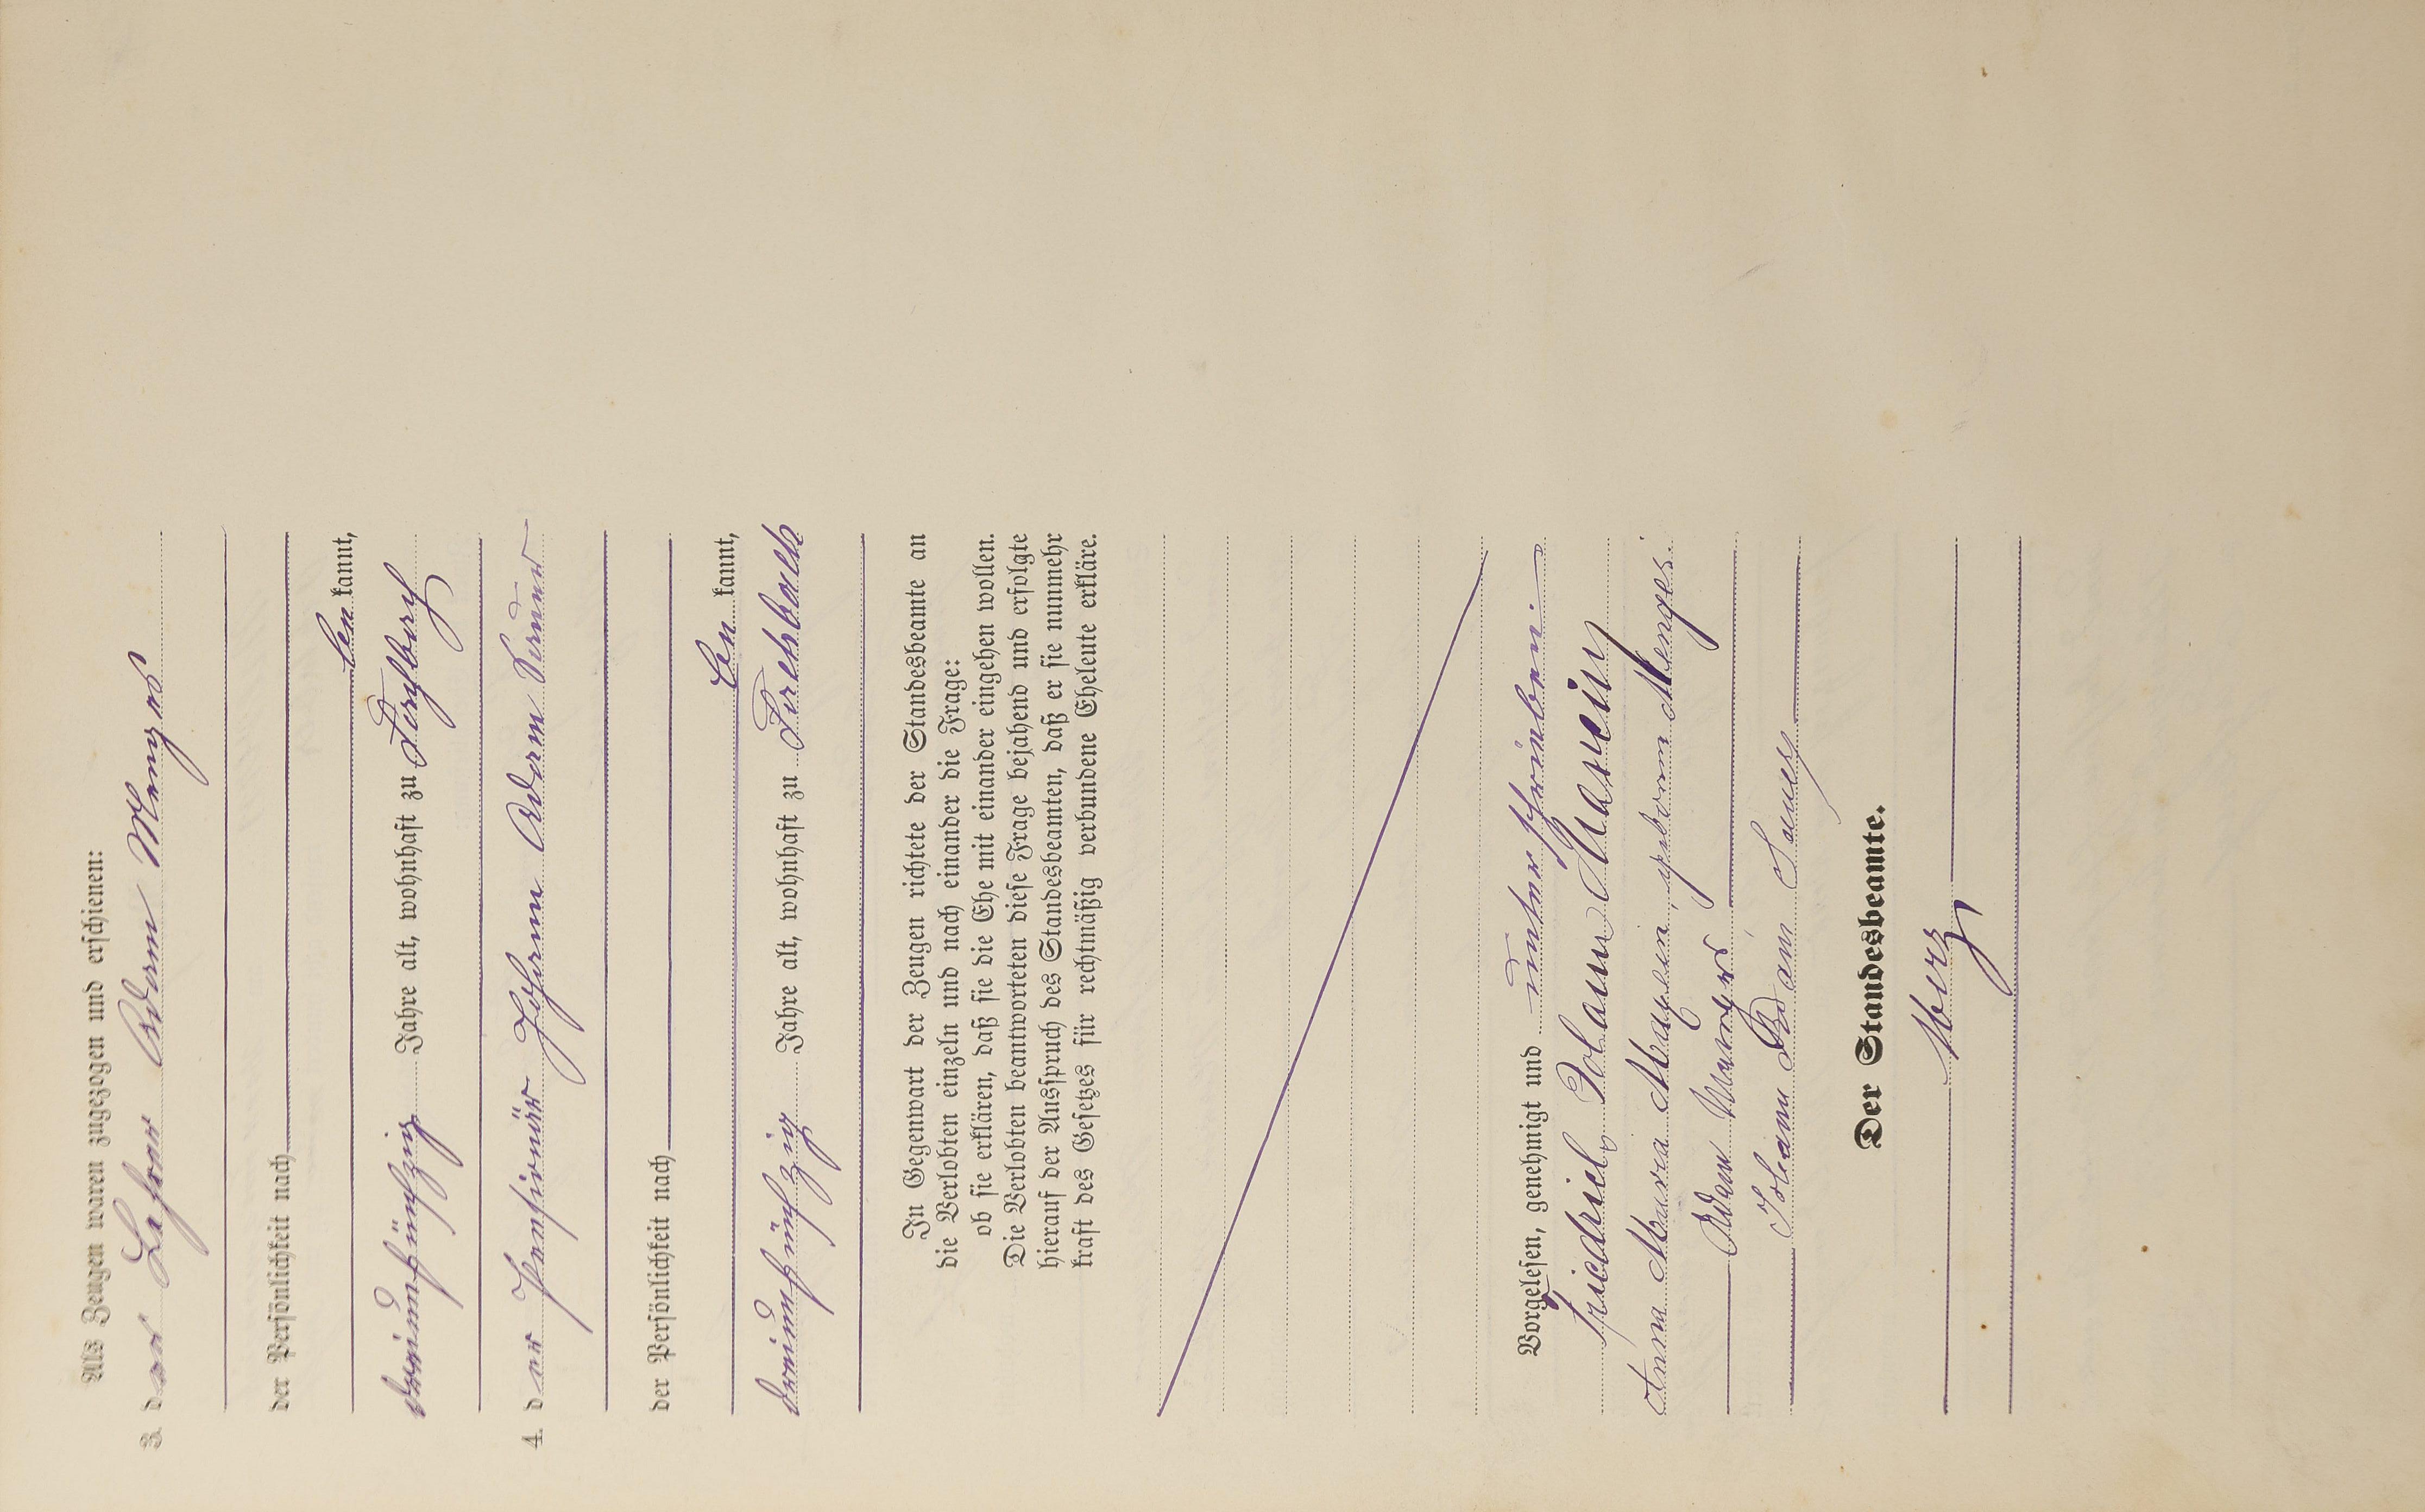 Als Zeugen waren zugezogen und erschienen:
3. der Lehrer Adam Menges
der Persönlichkeit nach
bekannt,
dreiundfünfzig Jahre alt, wohnhaft zu
4. der Pensionär Johann Adam
der Persönlichkeit nach
bekannt,
dreiundfünfzig Jahre alt, wohnhaft zu
In Gegenwart der Zeugen richtete der Standesbeamte an
die Verlobten einzeln und nach einander die Frage:
ob sie erklären, daß sie die Ehe mit einander eingehen wollen.
Die Verlobten beantworteten diese Frage bejahend und erfolgte
hierauf der Ausspruch des Standesbeamten, daß er sie nunmehr
kraft des Gesetzes für rechtmäßig verbundene Eheleute erkläre.
Vorgelesen, genehmigt und unterschrieben.
Friedrich Johann
Anna Maria geborne Menges.
Adam Menges
Johann Adam
Der Standesbeamte.
Merz